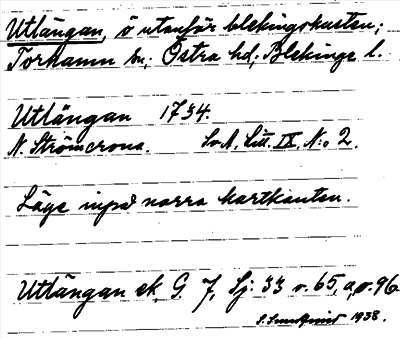 Utlängan, ö utanför blekingekusten;
Torhamn sn; Östra hd; Blekinge l.
Utlängan 1734.
N. Strömcrona. SvA, Litt. IX, N:o 2.
Läge inpå norra kartkanten.
Utlängan ek. G. 7, Sj: 33 v. 65, a, v. 96
1938.